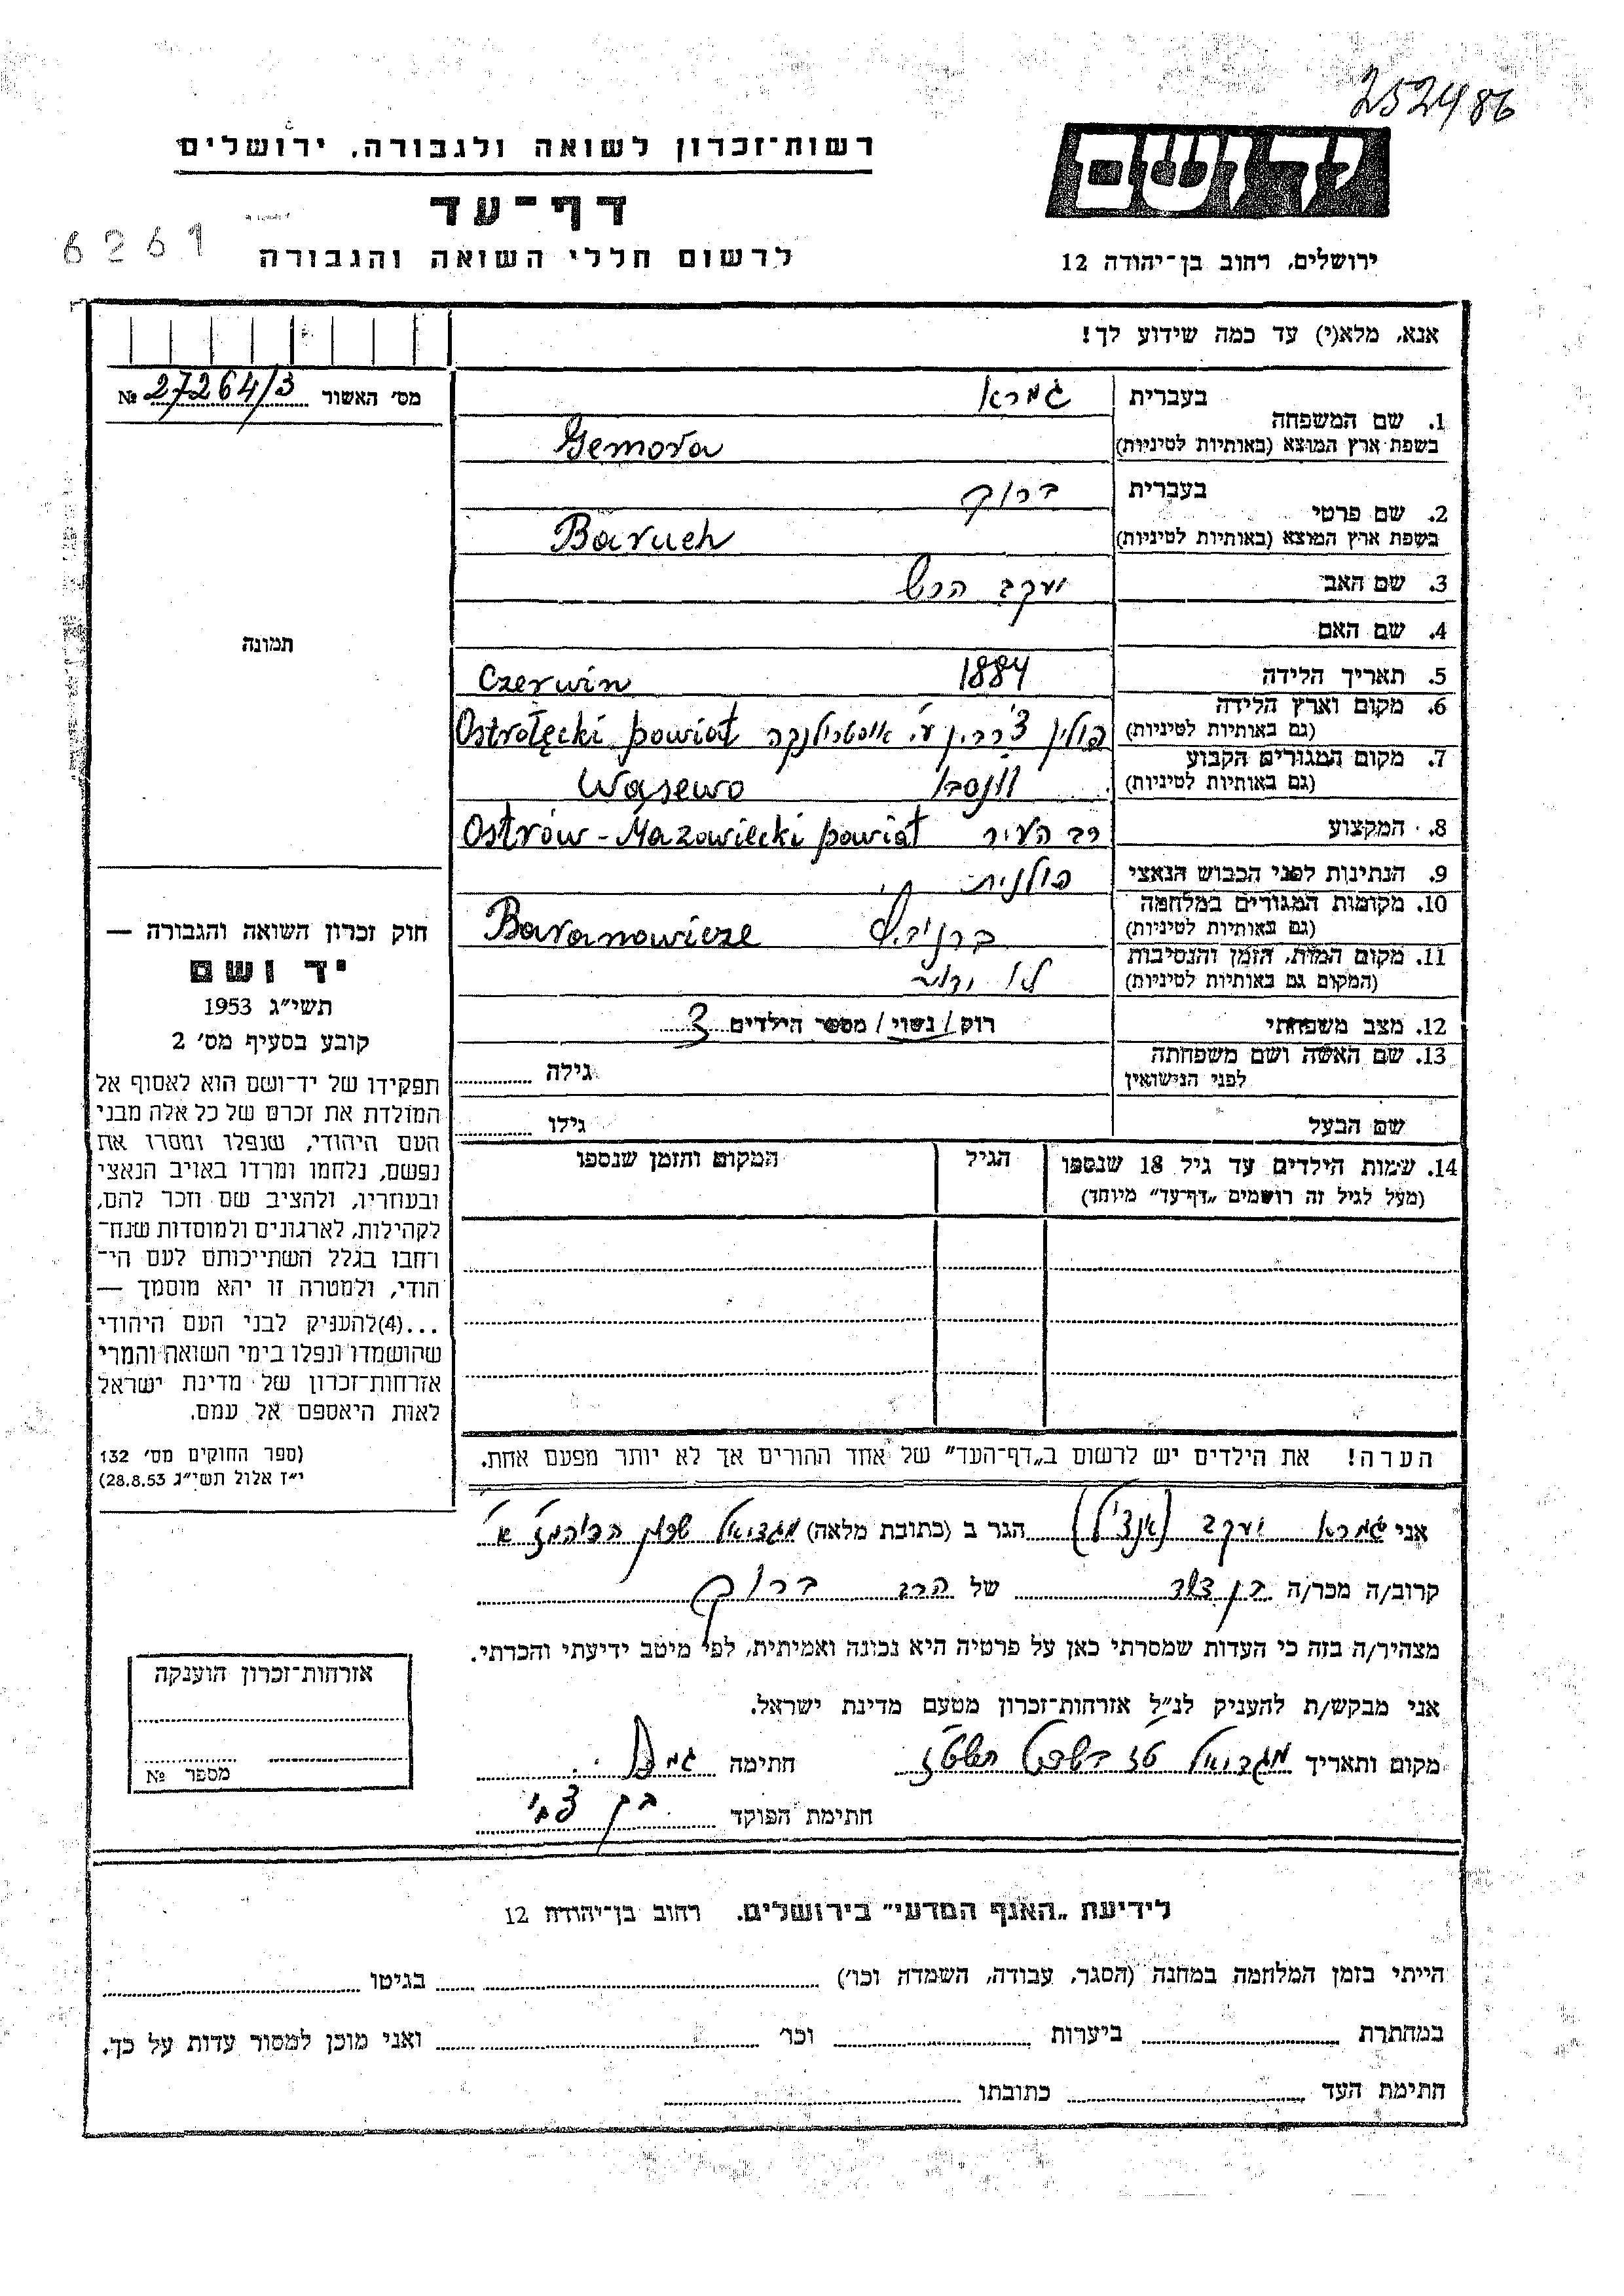 252486
רשות־זכרון לשואה ולגבורה, ירושלים
יד ושם
דף־עד
6261
לרשום חללי השואה והגבורה
ירושלים, רחוב בן־יהודה 12
אנא, מלא(י) עד כמה שידוע לך!
מס׳ האשור № 27264/3
בעברית גמרא
1. שם המשפחה
בשפת ארץ המוצא (באותיות לטיניות) Gemora
בעברית ברוך
2. שם פרטי
בשפת ארץ המוצא (באותיות לטיניות) Baruch
3. שם האב יעקב הרש
4. שם האם
תמונה
5. תאריך הלידה 1884 Czerwin
6. מקום וארץ הלידה
(גם באותיות לטיניות) פולין צ׳רבין ע׳י אוסטרולנקה Ostrołęcki powiat
7. מקום המגורים הקבוע
(גם באותיות לטיניות) Wąsewo
8. המקצוע רב העיר Ostrów-Mazowiecki powiat
9. הנתינות לפני הכבוש הנאצי פולנית
10. מקומות המגורים במלחמה
(גם באותיות לטיניות) Baranowicze
11. מקום המות, הזמן והנסיבות
(המקום גם באותיות לטיניות) לא ידוע
12. מצב משפחתי רוק / נשוי / מספר הילדים 3
13. שם האשה ושם משפחתה
לפני הנישואין גילה
שם הבעל גילו
14. שמות הילדים עד גיל 18 שנספו הגיל המקום והזמן שנספו
(מעל לגיל זה רושמים „דף־עד” מיוחד)
חוק זכרון השואה והגבורה —
יד ושם
תשי״ג 1953
קובע בסעיף מס׳ 2
תפקידו של יד־ושם הוא לאסוף אל
המולדת את זכרם של כל אלה מבני
העם היהודי, שנפלו ומסרו את
נפשם, נלחמו ומרדו באויב הנאצי
ובעוזריו, ולהציב שם וזכר להם,
לקהילות, לארגונים ולמוסדות שנח־
רחבו בגלל השתייכותם לעם הי־
הודי, ולמטרה זו יהא מוסמך —
...(4)להעניק לבני העם היהודי
שהושמדו ונפלו בימי השואה והמרי
אזרחות־זכרון של מדינת ישראל
לאות היאספם אל עמם.
(ספר החוקים מס׳ 132
י״ז אלול תשי״ג 28.8.53)
הערה! את הילדים יש לרשום ב„דף־העד” של אחד ההורים אך לא יותר מפעם אחת.
אני גמרא יעקב הגר ב (כתובת מלאה) מגדיאל שכון
קרוב/ה מכר/ה בן דוד של הרב ברוך
מצהיר/ה בזה כי העדות שמסרתי כאן על פרטיה היא נכונה ואמיתית, לפי מיטב ידיעתי והכרתי.
אני מבקש/ת להעניק לנ״ל אזרחות־זכרון מטעם מדינת ישראל.
מקום ותאריך מגדיאל חתימה
חתימת הפוקד
אזרחות־זכרון הוענקה
מספר №
לידיעת „האגף המדעי” בירושלים, רחוב בן־יהודה 12
הייתי בזמן המלחמה במחנה (הסגר, עבודה, השמדה וכו׳) בגיטו
במחתרת ביערות וכו׳ ואני מוכן למסור עדות על כך.
חתימת העד כתובתו